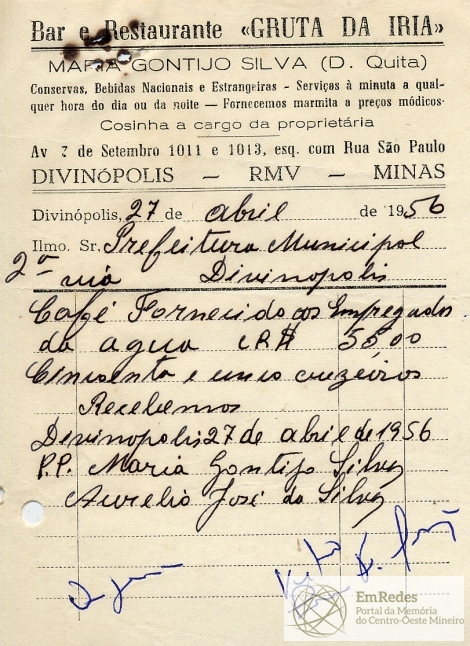 Bar e Restaurante «GRUTA DA IRIA»
MARIA GONTIJO SILVA (D. Quita)
Conservas, Bebidas Nacionais e Estrangeiras - Serviços à minuta a qual-
quer hora do dia ou da noite — Fornecemos marmita a preços módicos.
Cosinha a cargo da proprietária
Av 7 de Setembro 1011 e 1013, esq. com Rua São Paulo
DIVINÓPOLIS - RMV - MINAS
Divinópolis, 27 de abril de 1956
Ilmo. Sr. Prefeitura Municipal
2ª via Divinopolis
Café Fornecido aos Empregados
da agua CR$ 55,00
Cincoenta e cinco cruzeiros
Recebemos
Divinopolis 27 de abril de 1956
P.P. Maria Gontijo Silva
Aurelio José da Silva
EmRedes
Portal da Memória
do Centro-Oeste Mineiro